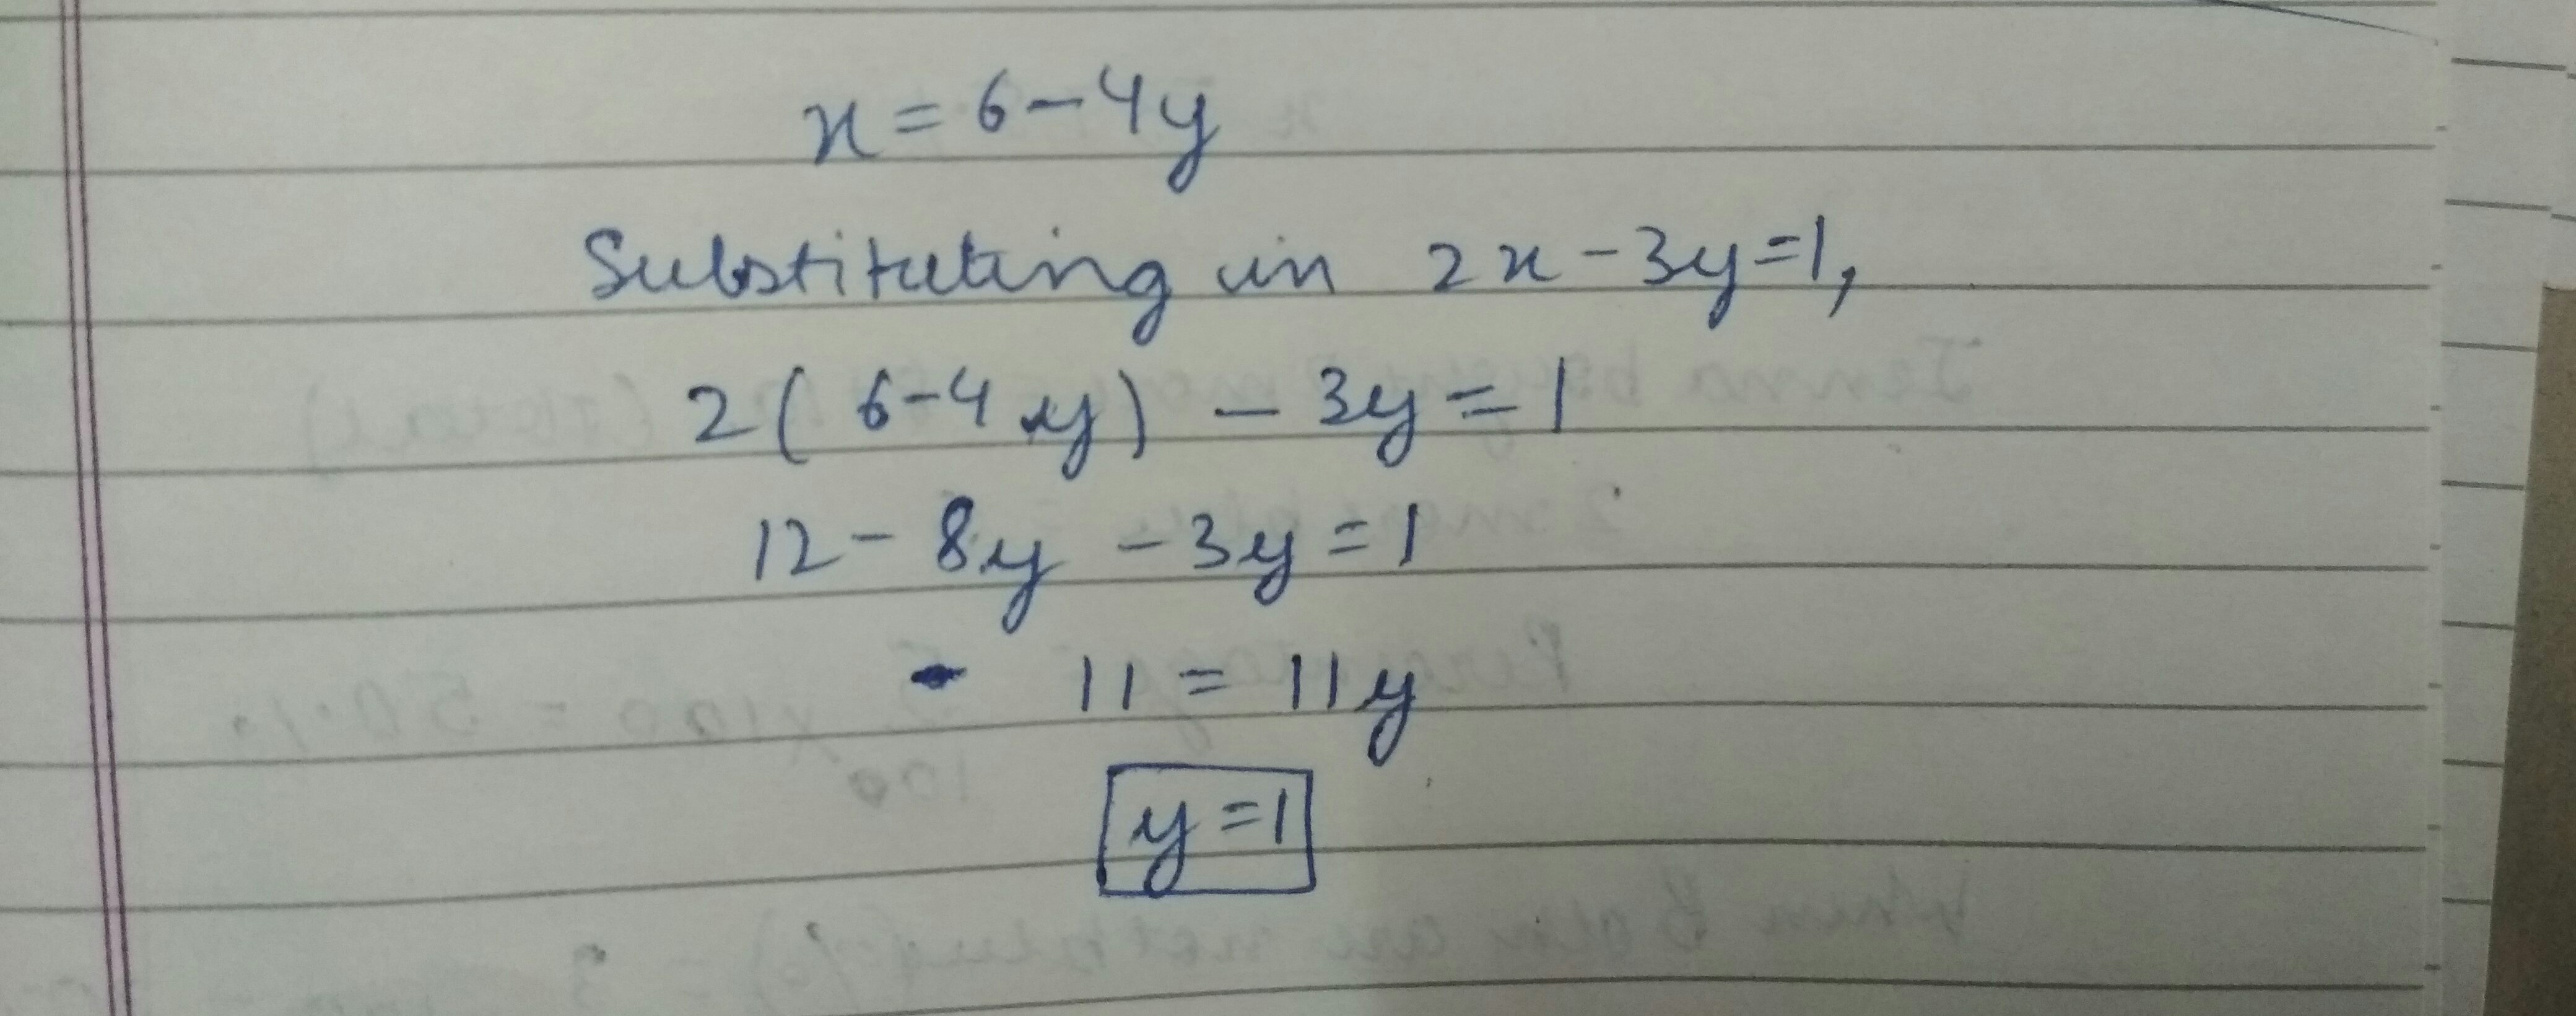 x = 6 - 4y
Substituting in 2x - 3y = 1,
2(6 - 4y) - 3y = 1
12 - 8y - 3y = 1
11 = 11y
y = 1